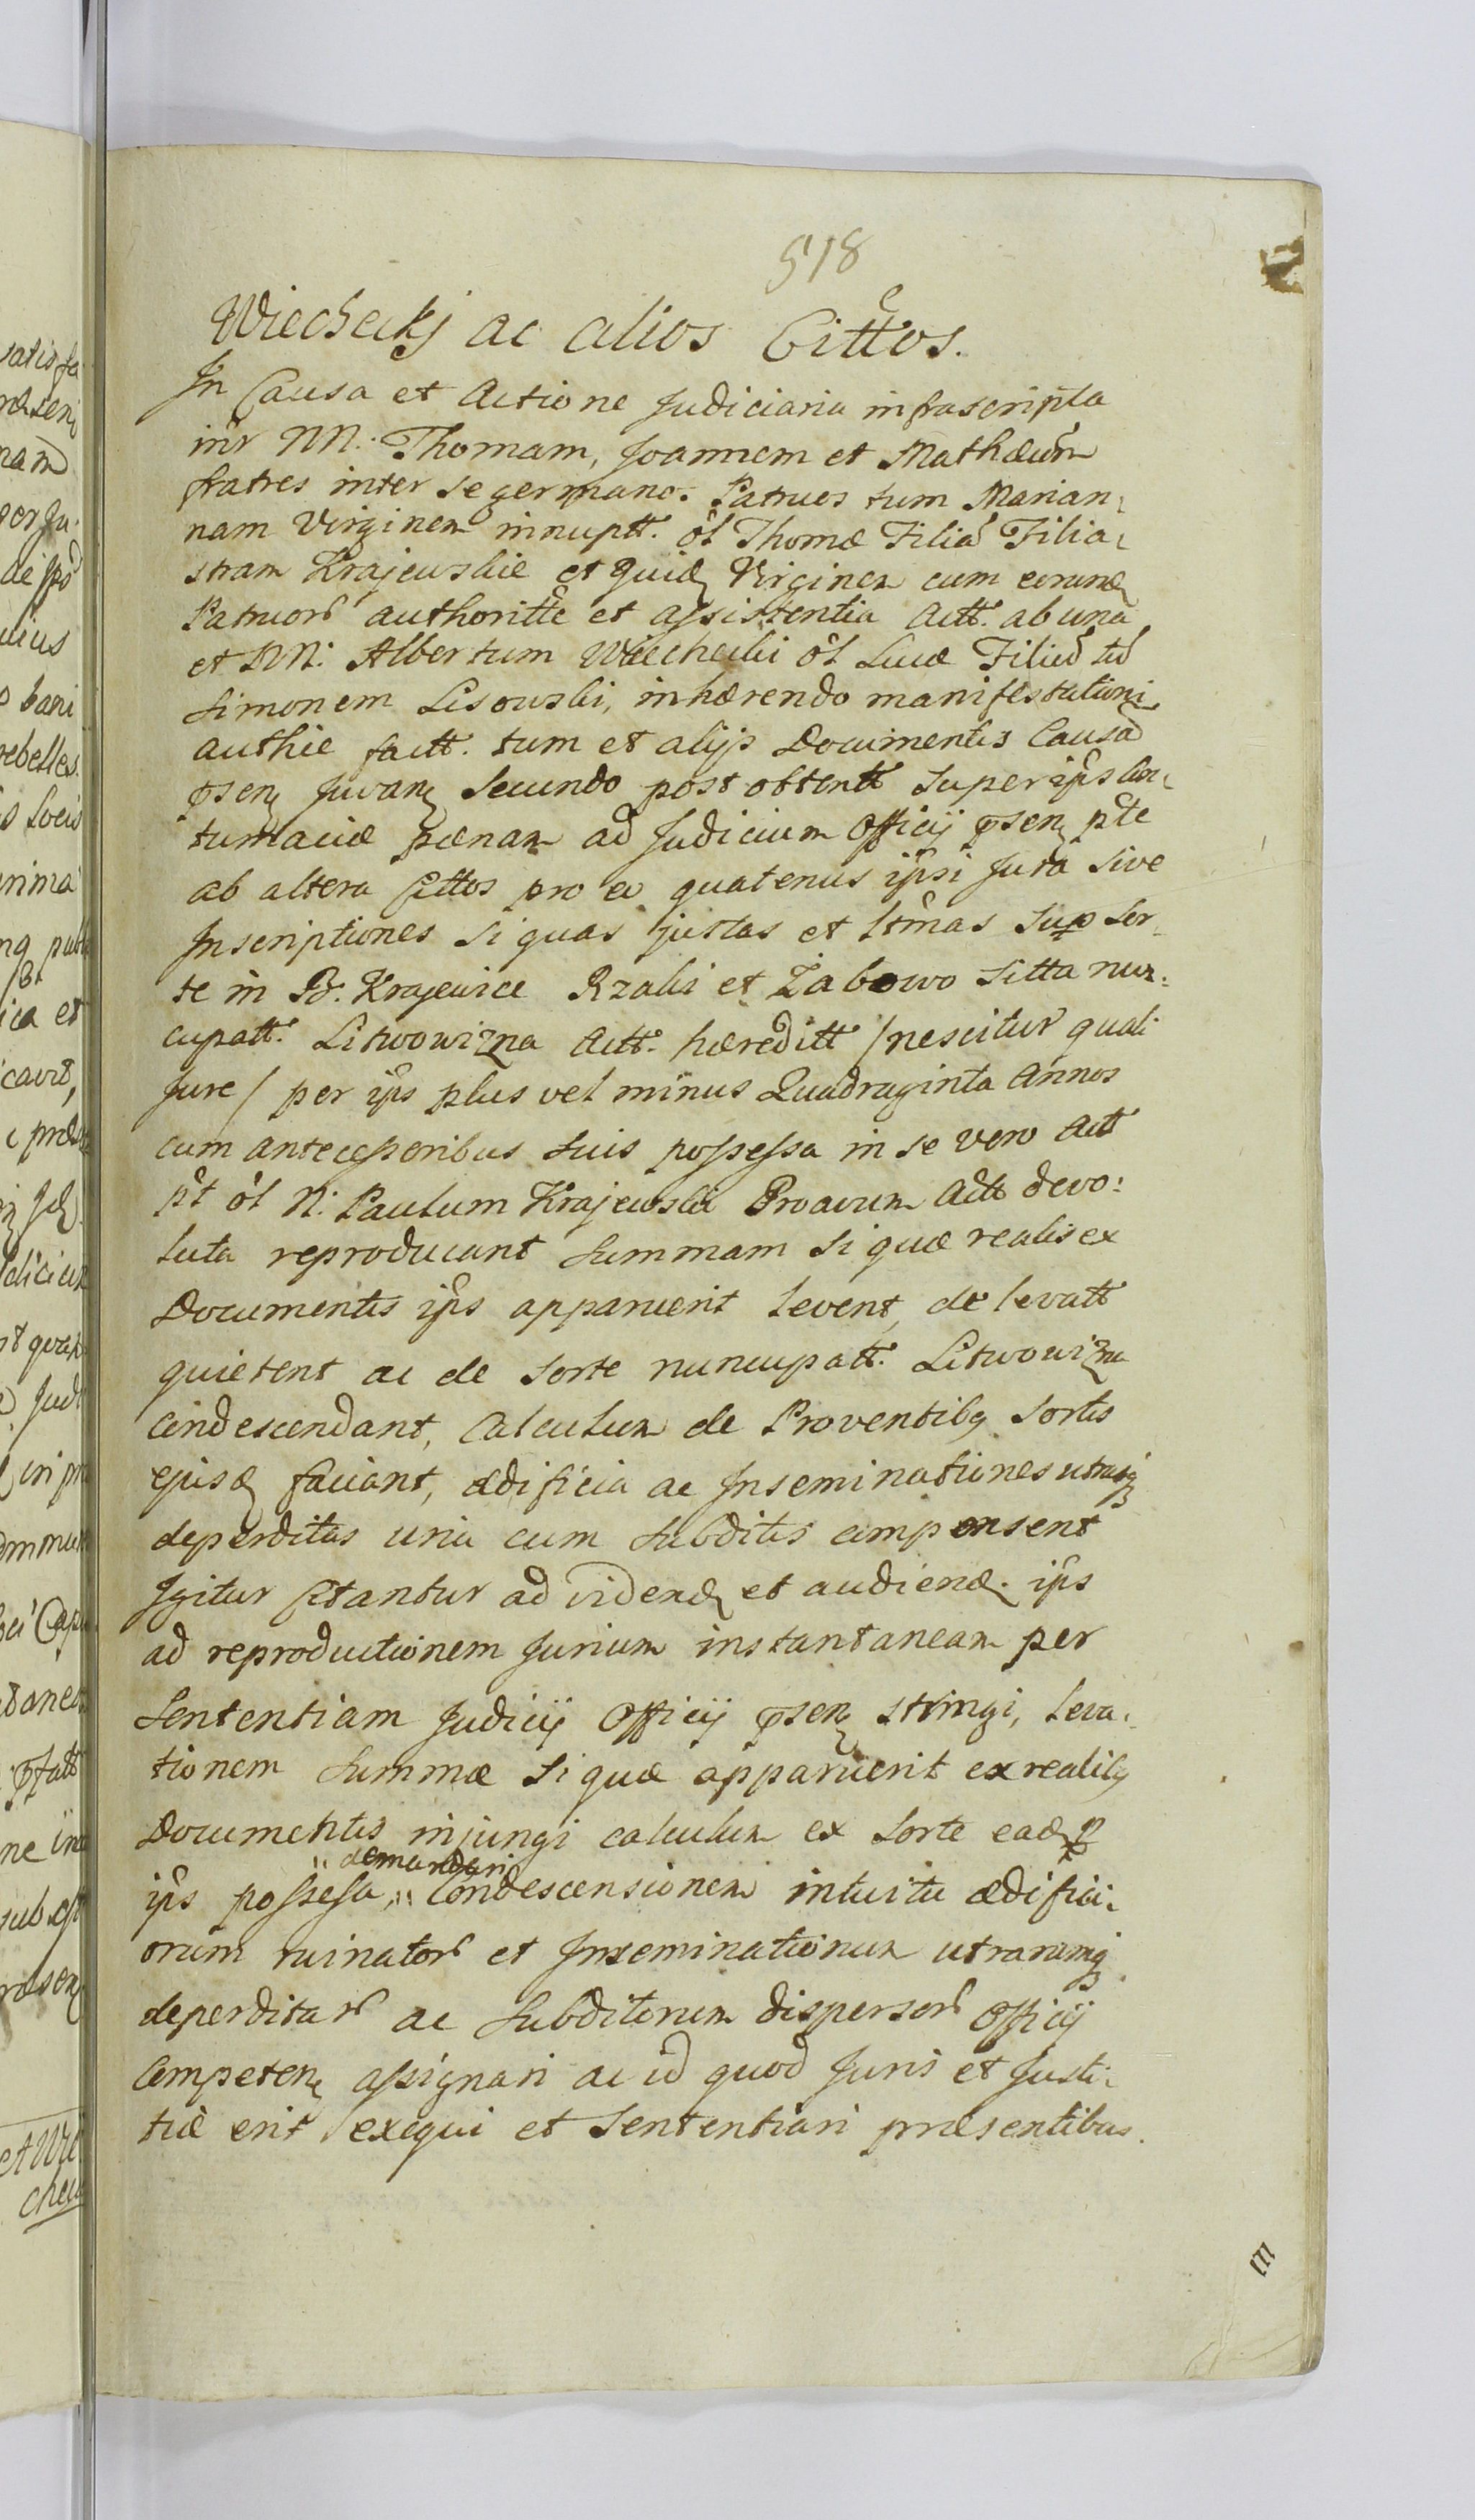 518
Wiecheckj ac alios Cittõs.
In Causa et Actione Judiciaria infrascripta
intr NN: Thomam, Joannem et Mathæum
fratres inter se germano. Patruos tum Marian-
nam Virginem innuptt. ol Thomæ Filiã Filia-
stram Krajewskie et quid Virginem cum eorund
Patruorũ authoritte et assistentia Actt. ab una
et NN: Albertum Wiechecki ol Lucæ Filiũ tũ
Simonem Lisowski, inhærendo manifestationi
authie factt. tum et alijs Documentis Causã
psen Juvan Secundo post obtentt super ips Con-
tumaciæ pænam ad Judicium Officij psen pte
ab altera Cittos pro eo quatenus ipsi Jura sive
Inscriptiones si quas justas et ltmas sup Sor-
te in B. Krajewice Rzaki et Żabowo sitta nun-
cupatt. Litwowizna Actt. hæreditt /nescitur quali
Jure/ per ips plus vel minus Quadraginta Annos
cum antecessoribus suis possessa in se vero Actt
pt ol N: Paulum Krajewski Proavum Actt devo:
luta reproducant Summam si quæ realis ex
Documentis ips apparuerit levent, de levatt
quietent ac de Sorte nuncupatt. Litwowizna
Condescendant, Calculum de Proventibq Sortis
ejusd faciant, ædificia ac Inseminationes utrasq
deperditas una cum Subditis compensent
Igitur Citantur ad vidend et audiend. ips
ad reproductionem Jurium instantaneam per
Sententiam Judicij Officij psen stringi, leva-
tionem Summæ si quæ apparuerit ex realibq
Documentis injungi calculum ex Sorte ead p
" demandari
ips possessa, " Condescensionem intuitu ædifici-
orum ruinatorũ et Inseminationum utrarumq
deperditarũ ac Subditorum dispersorũ Officij
Competen assignari ac id quod Juris et Justi-
tiæ erit exequi et Sententiari præsentibus.
m